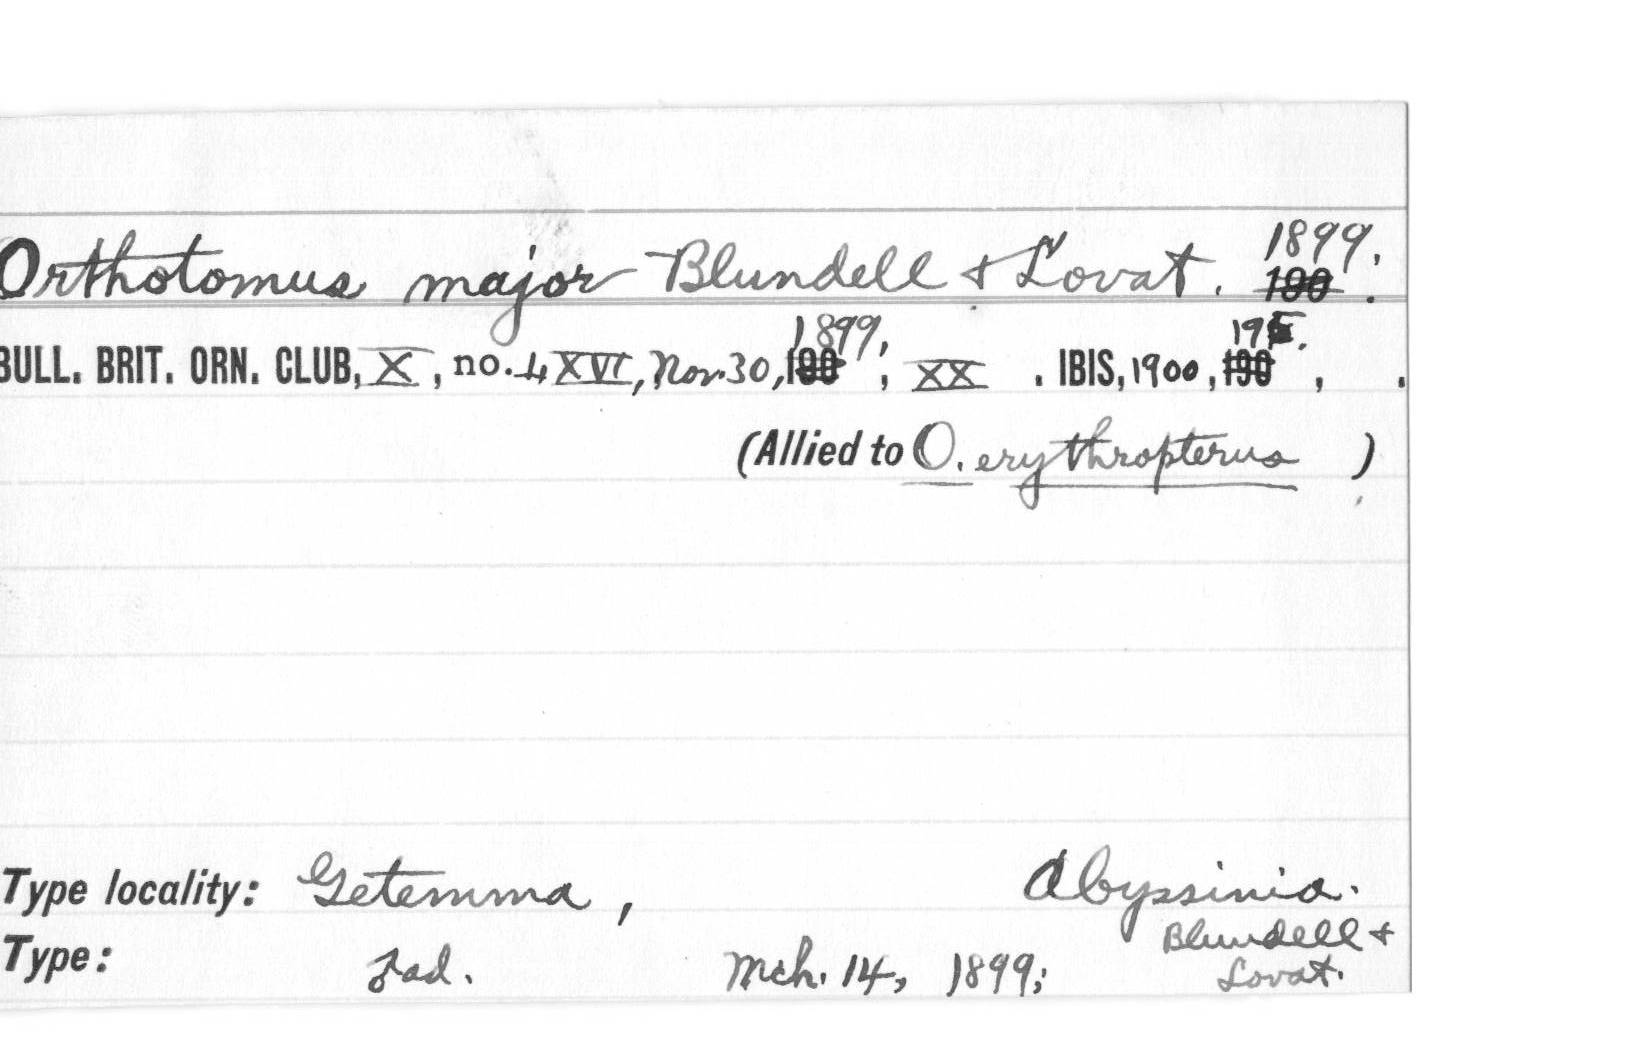 Orthotomus major Blundell & Lovat. 1899.
190 .
BULL. BRIT. ORN. CLUB, X, no. 4 XVI, Nov. 30, 190 1899, , XX . IBIS, 1900, 190 , .
(Allied to O. erythropterus )
Type locality: Getemma, Abyssinia.
Type: ad. Mch. 14, 1899; Blundell &
Lovat.